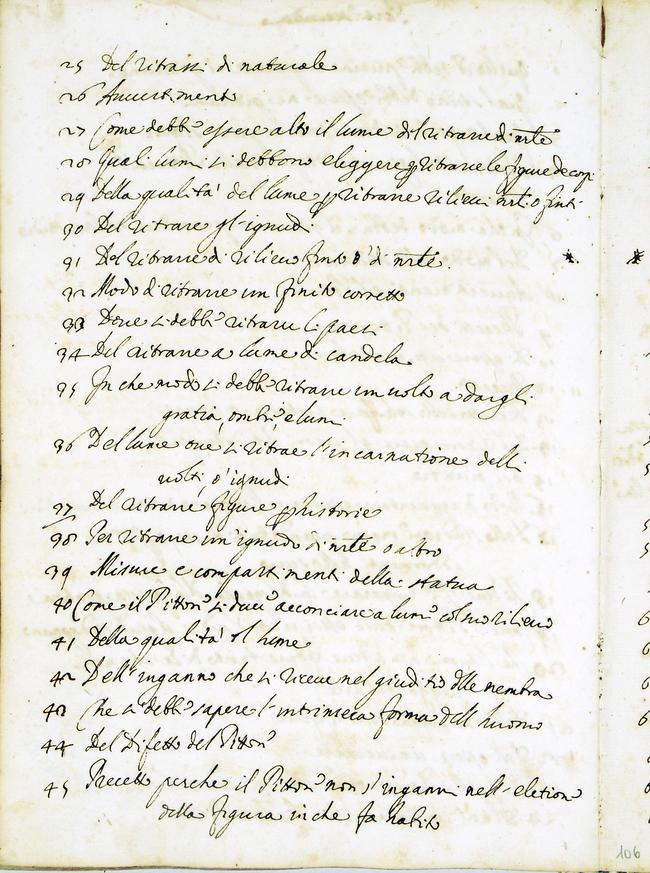 25 Del ritrarre di naturale
26 Avvertimento
27 Come debb' essere alto il lume del ritrarre di nrle
28 Quali lumi si debbono eleggere p ritrarre le figure de corpi
29 Della qualità del lume p ritrarre rilievi nrli o finti
30 Del ritrare gl'ignudi
31 Del ritrare di rilievo finto o' di nrle.
32 Modo di ritrarre un finito corretto
33 Dove si debbe ritrarre li paesi
34 Del ritrarre a lume di candela
35 In che modo si debbe ritrarre un volto a dargli
gratia, ombre, e lumi
36 Del lume ove si ritrae l'incarnatione delli
volti, o' ignudi
37 Del ritrarre figure p historie
38 Per ritrarre un' ignudo di nrle o altro
39 Misure e compartimenti della statua
40 Come il Pittore si deve acconciare a lume col suo rilievo
41 Della qualità del lume
42 Dell' inganno che si riceve nel giuditio delle membra
43 Che si debbe sapere l'intrinseca forma dell' huomo
44 Del Difetto del Pittore
45 Precetto perche il Pittore non s'inganni nell' eletione
della figura in che fa habito
106